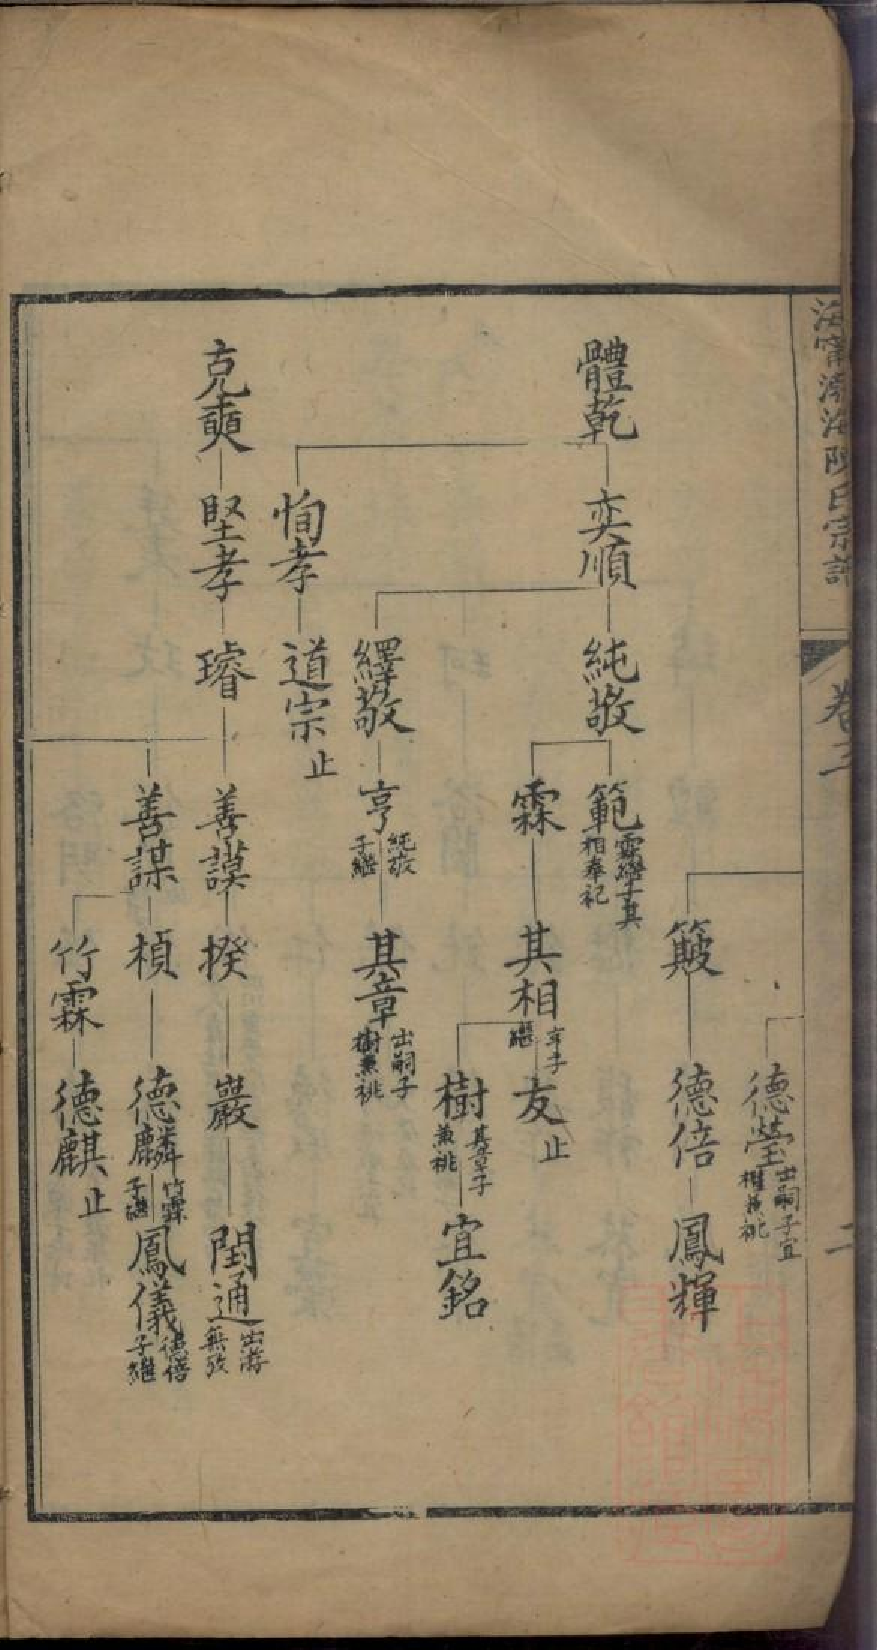 海寧渤海陳氏宗譜
卷三
二
德瑩
出嗣子宜
權兼祧
簸
德倍
鳳輝
體乾
奕順
純敬
範
霖繼子其
相奉祀
霖
其相
亨子
繼
友
止
樹
其章子
兼祧
宜銘
繹敬
亨
純敬
子繼
其章
出嗣子
樹兼祧
恂孝
道宗
止
克奭
堅孝
璿
善謨
揆
巖
閏通
出游
無攷
善謀
楨
德麟
竹霖
子繼
鳳儀
德倍
子繼
竹霖
德麒
止